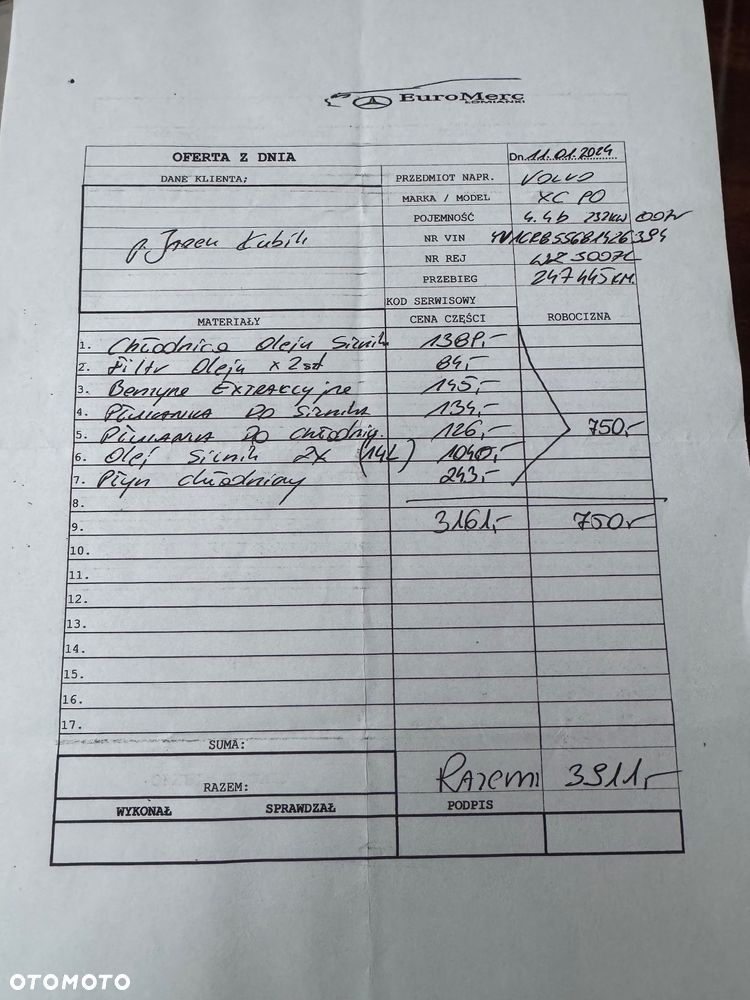 EuroMerc
ŁOMIANKI
OFERTA Z DNIA Dn. 11.01.2024
DANE KLIENTA; PRZEDMIOT NAPR. VOLVO
MARKA / MODEL XC 90
POJEMNOŚĆ 4.4b 232KW 2007r
p. Jacek Kubik NR VIN
NR REJ
PRZEBIEG 247445KM.
KOD SERWISOWY
MATERIAŁY CENA CZĘŚCI ROBOCIZNA
1. Chłodnica Oleju Silnik 1389,-
2. Filtr Oleju x 2szt 84,-
3. Benzyna EXTRAKCYJNA 145,-
4. PŁUKANKA DO Silnika 134,-
5. PŁUKANKA DO Chłodnic. 126,- 750,-
6. Olej Silnik 2x (14L) 1040,-
7. Płyn chłodniczy 243,-
8.
9. 3161,- 750,-
10.
11.
12.
13.
14.
15.
16.
17.
SUMA:
RAZEM: RAZEM 3911,-
WYKONAŁ SPRAWDZAŁ PODPIS
OTOMOTO